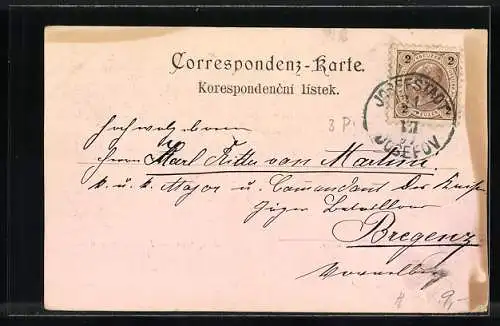 Correspondenz-Karte.
Korespondenční lístek.
2 2
JOSEFSTADT
VII
JOSEFOV
3 P.
Hochwolgeboren
Herrn Karl Ritter von Martini
k. u. k. Major u. Commandant des
Jäger Bataillon
Bregenz
Vorarlberg